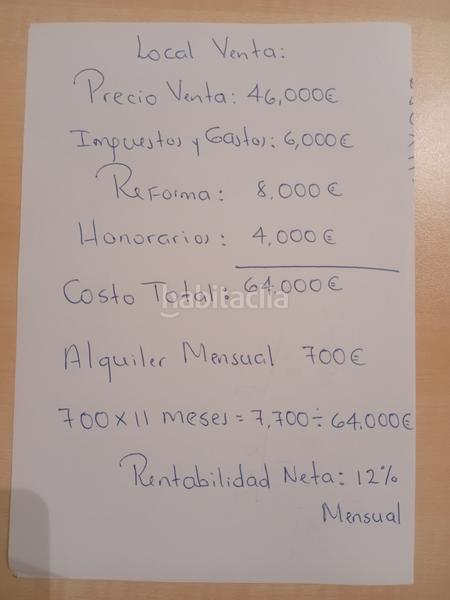 Local Venta:
Precio Venta: 46,000€
Impuestos y Gastos: 6,000€
Reforma: 8,000€
Honorarios: 4,000€
Costo Total: 64,000€
habitaclia
Alquiler Mensual 700€
700 x 11 meses = 7,700 ÷ 64,000€
Rentabilidad Neta: 12%
Mensual